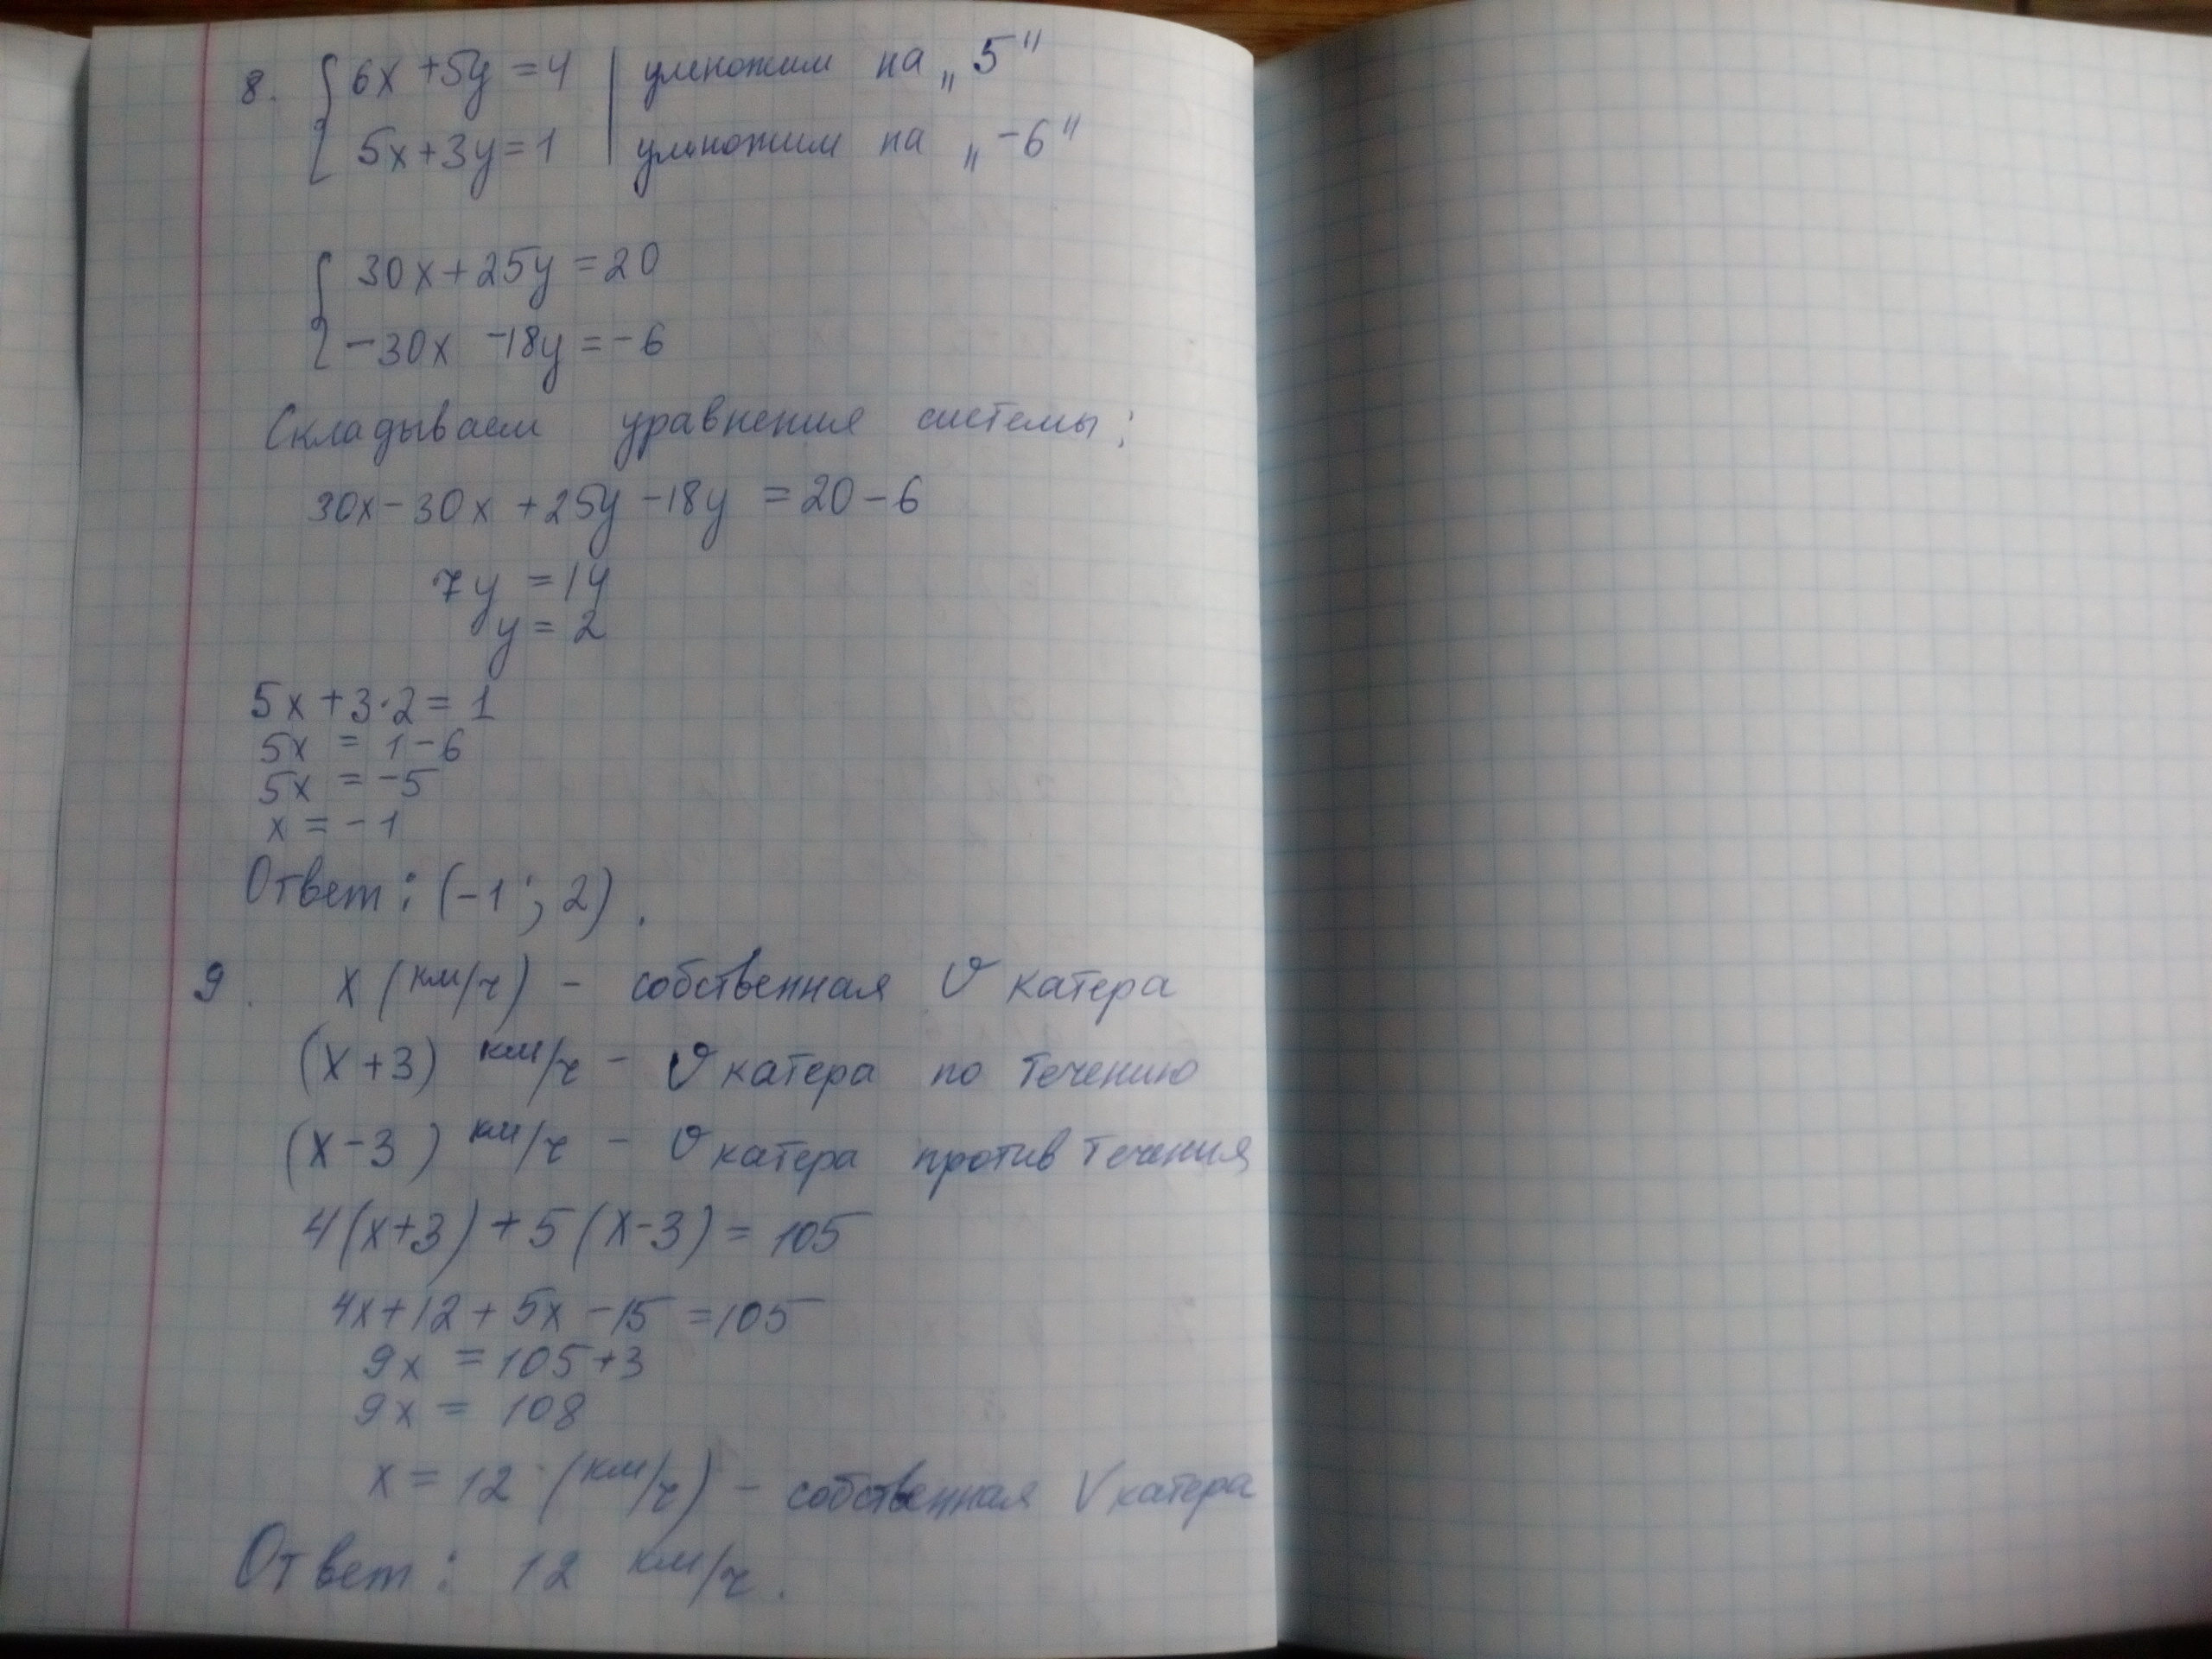 8. { 6x + 5y = 4 | умножим на „5“
5x + 3y = 1 | умножим на „-6“
{ 30x + 25y = 20
-30x - 18y = -6
Складываем уравнения системы:
30x - 30x + 25y - 18y = 20 - 6
7y = 14
y = 2
5x + 3·2 = 1
5x = 1 - 6
5x = -5
x = -1
Ответ: (-1; 2).
9. x (км/ч) - собственная v катера
(x + 3) км/ч - v катера по течению
(x - 3) км/ч - v катера против течения
4(x+3) + 5(x-3) = 105
4x + 12 + 5x - 15 = 105
9x = 105 + 3
9x = 108
x = 12 (км/ч) - собственная V катера
Ответ: 12 км/ч.